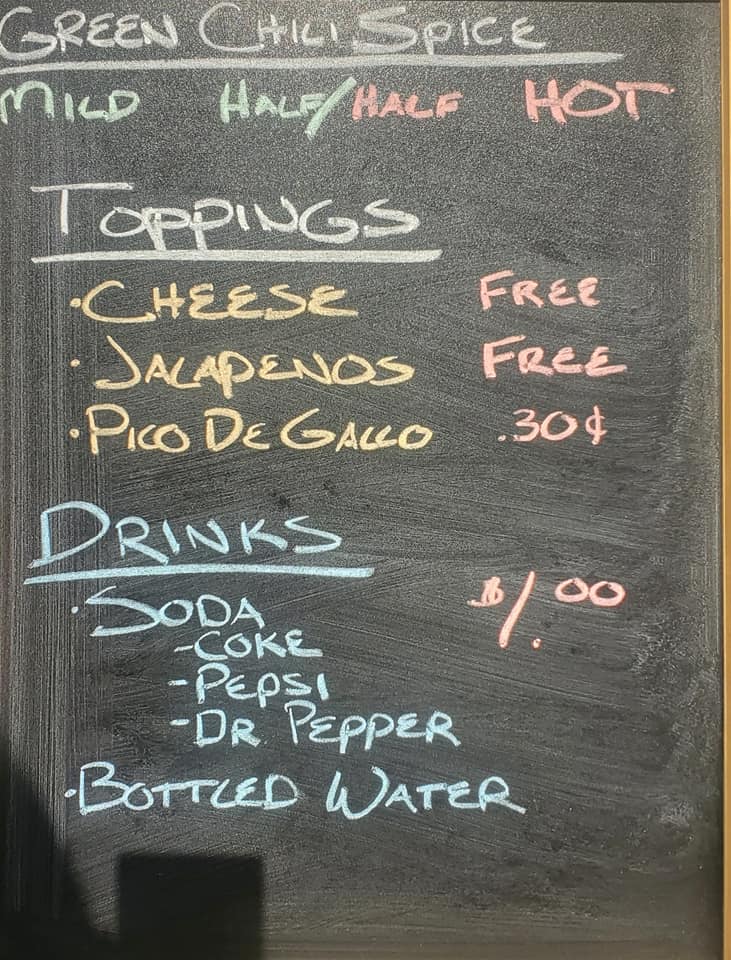 GREEN CHILI SPICE
MILD HALF/HALF HOT
TOPPINGS
·CHEESE FREE
·JALAPENOS FREE
·PICO DE GALLO .30¢
DRINKS
·SODA $1.00
-COKE
-PEPSI
-DR PEPPER
·BOTTLED WATER